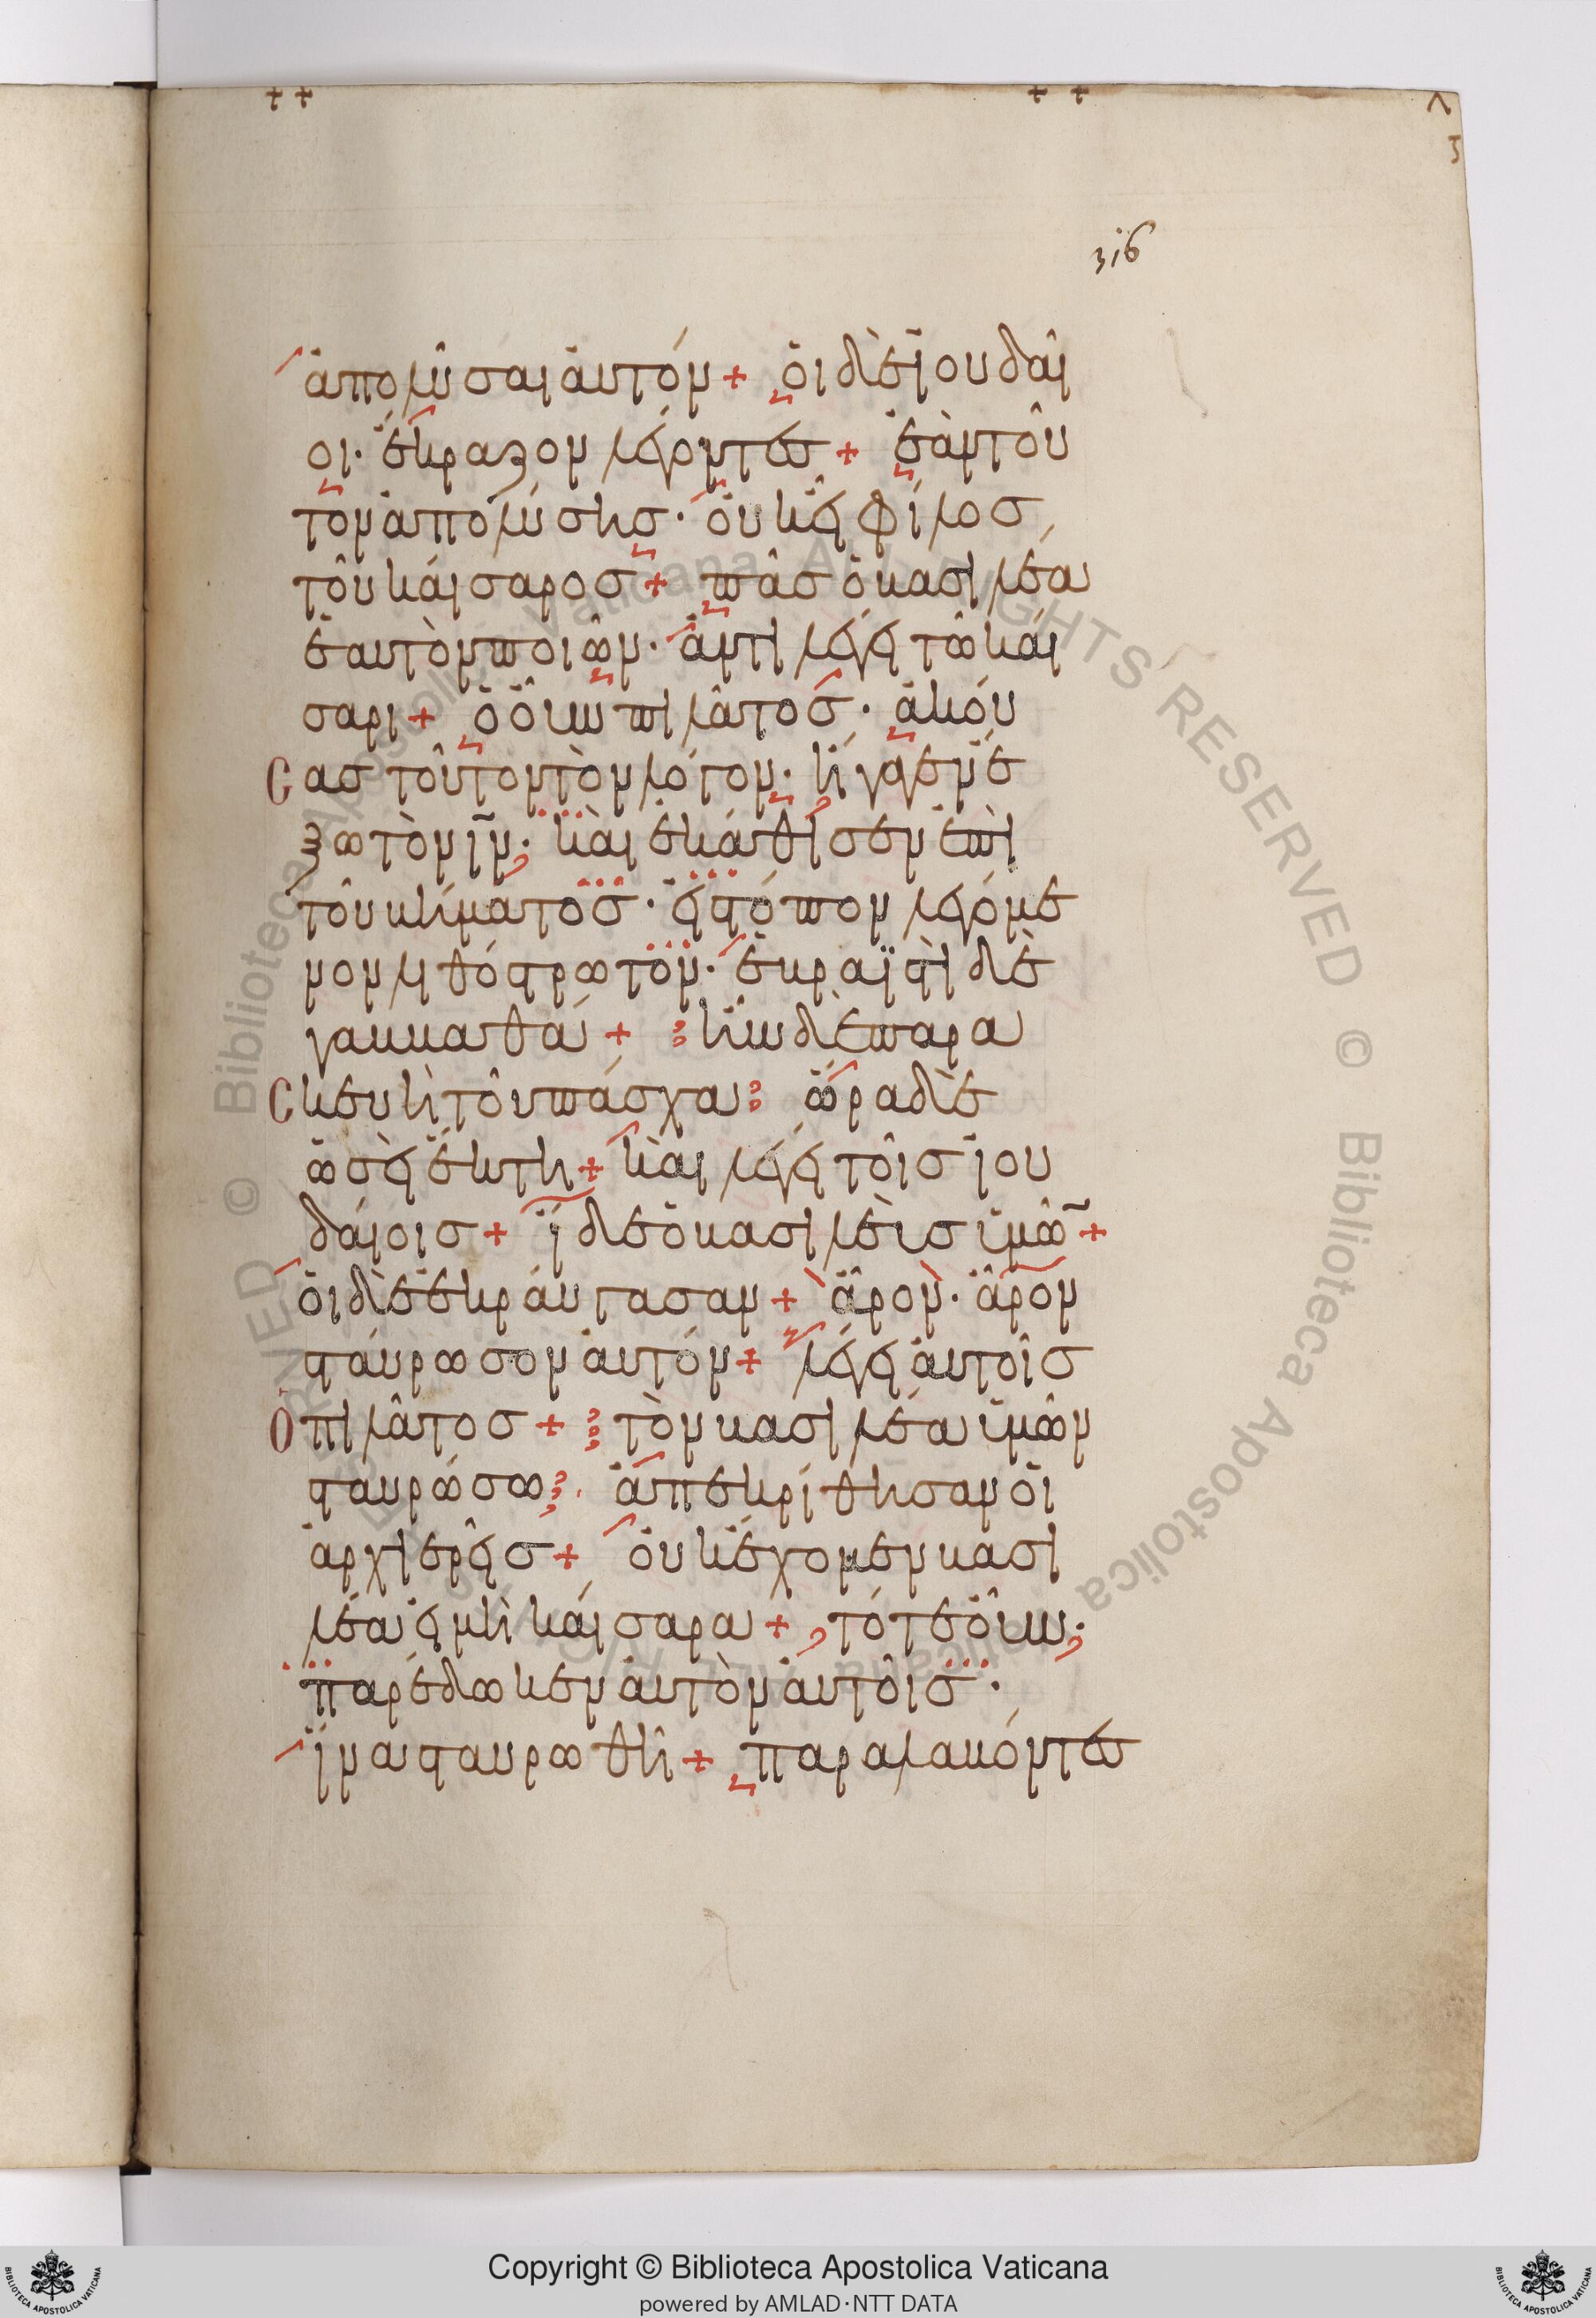 316
ἀπολῦσαι αὐτόν + οἱ δὲ ἰουδαῖ
οι· ἔκραζον λέγοντες + ἐὰν τοῦ
τον ἀπολύσης· οὐκ εἶ φίλος
τοῦ καίσαρος + πᾶς ὁ βασιλέα
ἑαυτὸν ποιῶν· ἀντιλέγει τῶ καί
σαρι + ὁ οὖν πιλᾶτος· ἀκού
σας τοῦτον τὸν λόγον· ἤγαγεν ἔ
ξω τὸν ἰν· καὶ ἐκάθισεν ἐπὶ
τοῦ βήματος· εἰς τόπον λεγόμε
νον λιθόστρωτον· ἑβραϊστὶ δὲ
γαββαθά + ἦν δὲ παρα
σκευὴ τοῦ πάσχα: ὥρα δὲ
ὡσεὶ ἕκτη + καὶ λέγει τοῖς ἰου
δαίοις + ἴδε ὁ βασιλεὺς ὑμῶ +
οἱ δὲ ἐκραύγασαν + ἆρον· ἆρον
σταύρωσον αὐτόν + λέγει αὐτοῖς
ὁ πιλᾶτος + τὸν βασιλέα ὑμῶν
σταυρώσω; ἀπεκρίθησαν οἱ
ἀρχιερεῖς + οὐκ ἔχομεν βασι
λέα εἰ μὴ καίσαρα + τότε οὖν·
παρέδωκεν αὐτὸν αὐτοῖς·
ἵνα σταυρωθῆ + παραλαβόντες
Copyright © Biblioteca Apostolica Vaticana
powered by AMLAD·NTT DATA